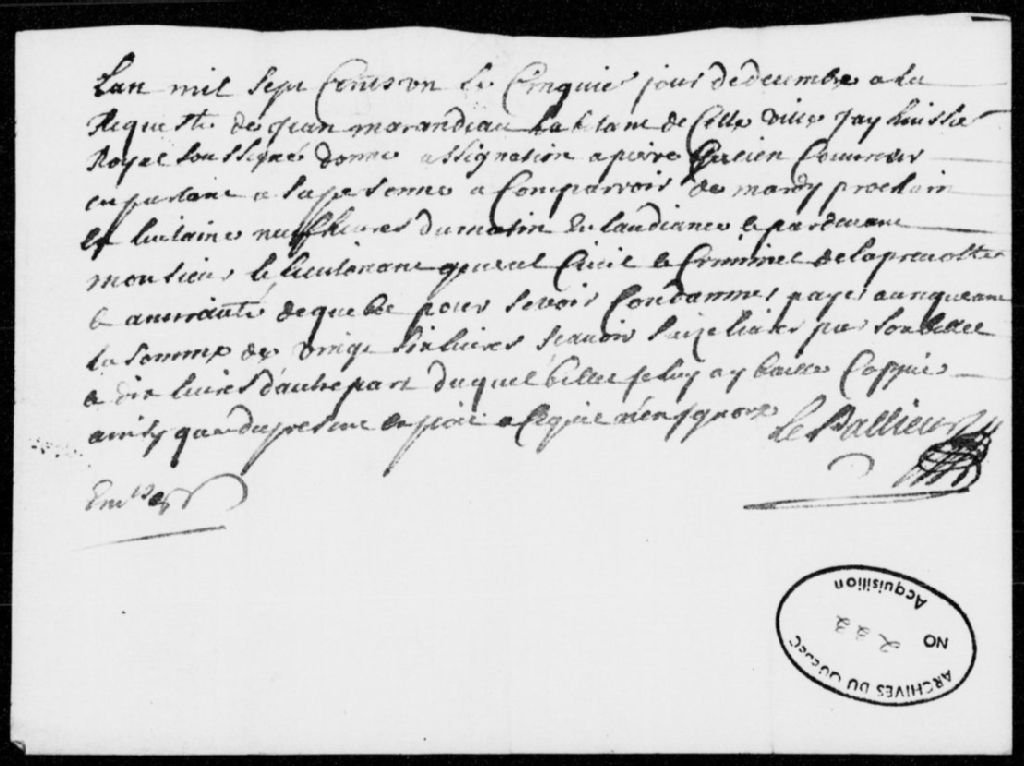 Lan mil sept Cents un le Cinquie jour de decembre a la
Requeste de jean marandeau habitant de Cette ville jay huissier
Royal soussigné donne assignation a pierre Couvreur
en parlant a sa personne a Comparoir de mardy prochain
en huitaine neuf heures du matin en laudiance & pardevant
monsieur le lieutenant general Civil & Criminel de la prevosté
& amirauté de quebec pour se voir Condamner payer aurequerant
la somme de vingt six livres scavoir seize livres par son billet
& dix livres dautre part duquel billet je luy ay baillé Coppie
ainsy que du present exploit a Ce quil nen ignore LePallieur
ARCHIVES DU QUÉBEC
NO 222
Acquisition